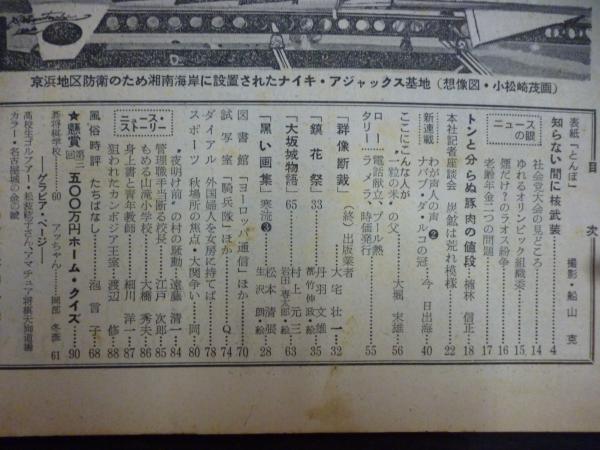 京浜地区防衛のため湘南海岸に設置されたナイキ・アジャックス基地(想像図・小松崎茂画)
目 次
表紙「とんぼ」 撮影・船山 克
知らない間に核武装 4
ニュースの眼
社会党大会の見どころ 14
ゆれるオリンピック組織委 15
煙だけ?のラオス紛争 16
老齢年金二つの問題 17
トンと分らぬ豚肉の値段 楠林 信正 18
本社記者座談会 炭鉱は荒れ模様 22
新連載 わが声人の声❷
ナバブ・ダ・ルコの冠 今 日出海 40
ここにこんな人が
“一粒の米”の父 大堀 末雄 56
ロータリー
電話献立、プール熱
ララ・メラ、時価発行 55
「群像断裁」(終)出版業者 大宅 壮一 32
「鏡花祭」33 丹羽 文雄 都竹 伸政・絵 35
「大坂城物語」65 村上 元三 岩田 専太郎・絵 63
「黒い画集」寒流❸ 松本 清張 生沢 朗・絵 28
図書館「ヨーロッパ通信」ほか 70
試写室「騎兵隊」ほか Q 74
ダイアル 外国婦人を女房に持てば 78
スポーツ 秋場所の焦点・大関争い 岡 80
ニュース・ストーリー
“夜明け前”の村の騒動 遠藤 清一 84
管理職手当断る校長 江戸 次郎 85
もめる山滝小学校 大橋 秀夫 86
身上書と青年教師 細川 洋一 87
狙われたカンボジア王室 渡辺 修 88
風俗時評 たちはなし 泡 言子 68
★懸賞 第三回 五〇〇万円ホーム・クイズ 90
グラビア・ページ
呉将棋学校 60 アマちゃん 岡部 冬彦 61